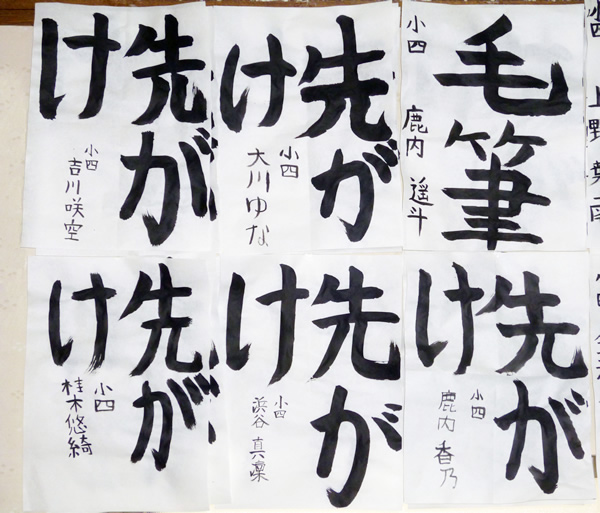 先が
け
小四
吉川咲空
先が
け
小四
大川ゆな
毛筆
小四
鹿内 遥斗
先が
け
小四
桂木悠綺
先が
け
小四
浜谷真凜
先が
け
小四
鹿内香乃